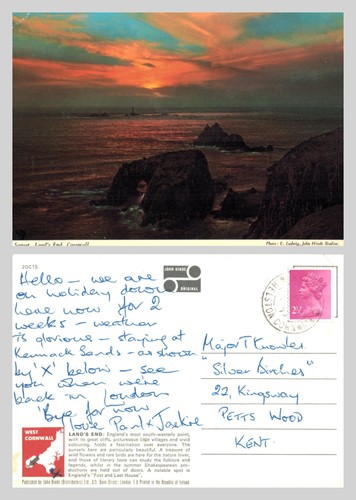 Sunset, Land's End, Cornwall
Photo: E. Ludwig, John Hinde Studios.
2DC15
JOHN HINDE
ORIGINAL
Hello - we are
on holiday down
here now for 2
weeks - weather
is glorious - staying at
Kennack Sands - as shown
by 'X' below - see
you when we're
back in London
'Bye for now
love Paul & Jackie
HELSTON
CORNWALL
2½
Major T Knowler
"Silver Birches"
22, Kingsway
PETTS WOOD
KENT.
WEST
CORNWALL
LAND'S END: England's most south-westerly point,
with its great cliffs, picturesque tiny villages and vivid
colouring, holds a fascination over everyone. The
sunsets here are particularly beautiful. A treasure of
wild flowers and rare birds are here for the nature lover,
and those of literary taste can study the folklore and
legends, whilst in the summer Shakespearean pro-
ductions are held out of doors. A notable spot is
England's "First and Last House".
Published by John Hinde (Distributors) Ltd., Dean Street, London
Printed in the Republic of Ireland